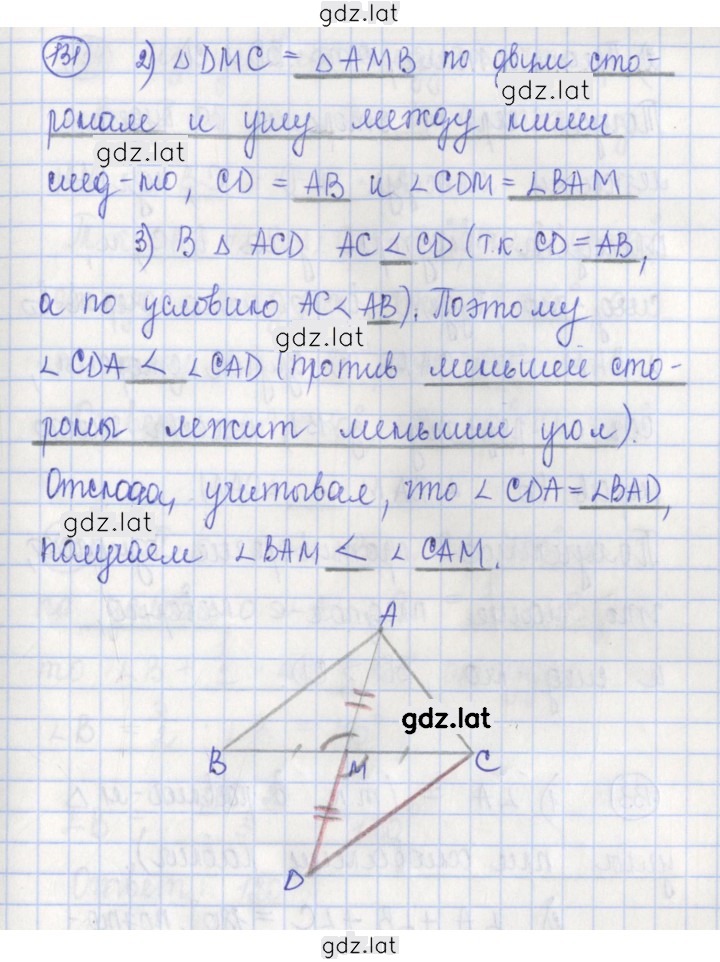 gdz.lat
131 2) △ DMC = △ AMB по двум сто-
gdz.lat
ронам и углу между ними
gdz.lat
след-но, CD = AB и ∠CDM = ∠BAM
3) В △ ACD AC < CD (т.к. CD = AB,
а по условию AC < AB). Поэтому
gdz.lat
∠CDA < ∠CAD (против меньшей сто-
роны лежит меньший угол).
Отсюда, учитывая, что ∠CDA = ∠BAD,
gdz.lat
получаем ∠BAM < ∠CAM.
A
gdz.lat
B M C
D
gdz.lat